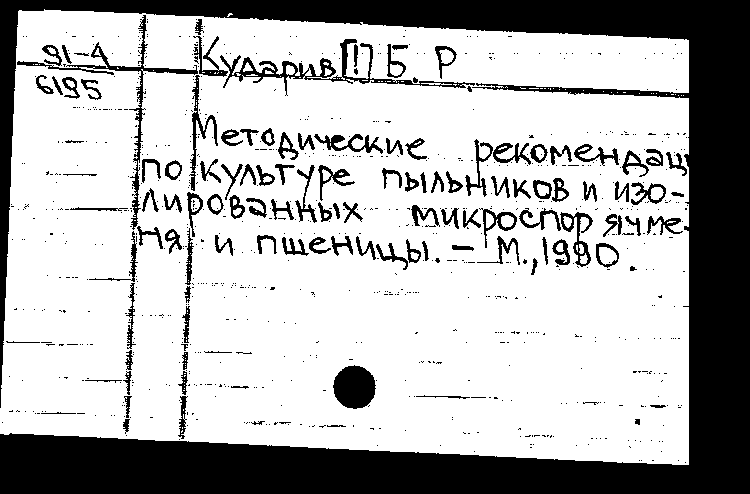 91-4
6195
Кударив[!] Б. Р
Методические рекомендац
по культуре пыльников и изо-
лированных микроспор ячме-
ня и пшеницы. - М., 1990.